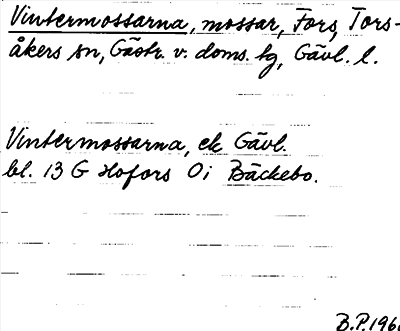 Vintermossarna, mossar, Fors, Tors-
åkers sn, Gästr. v. doms. tg, Gävl. l.
Vintermossarna, ek Gävl.
bl. 13 G Hofors Oi Bäckebo.
B.P.196